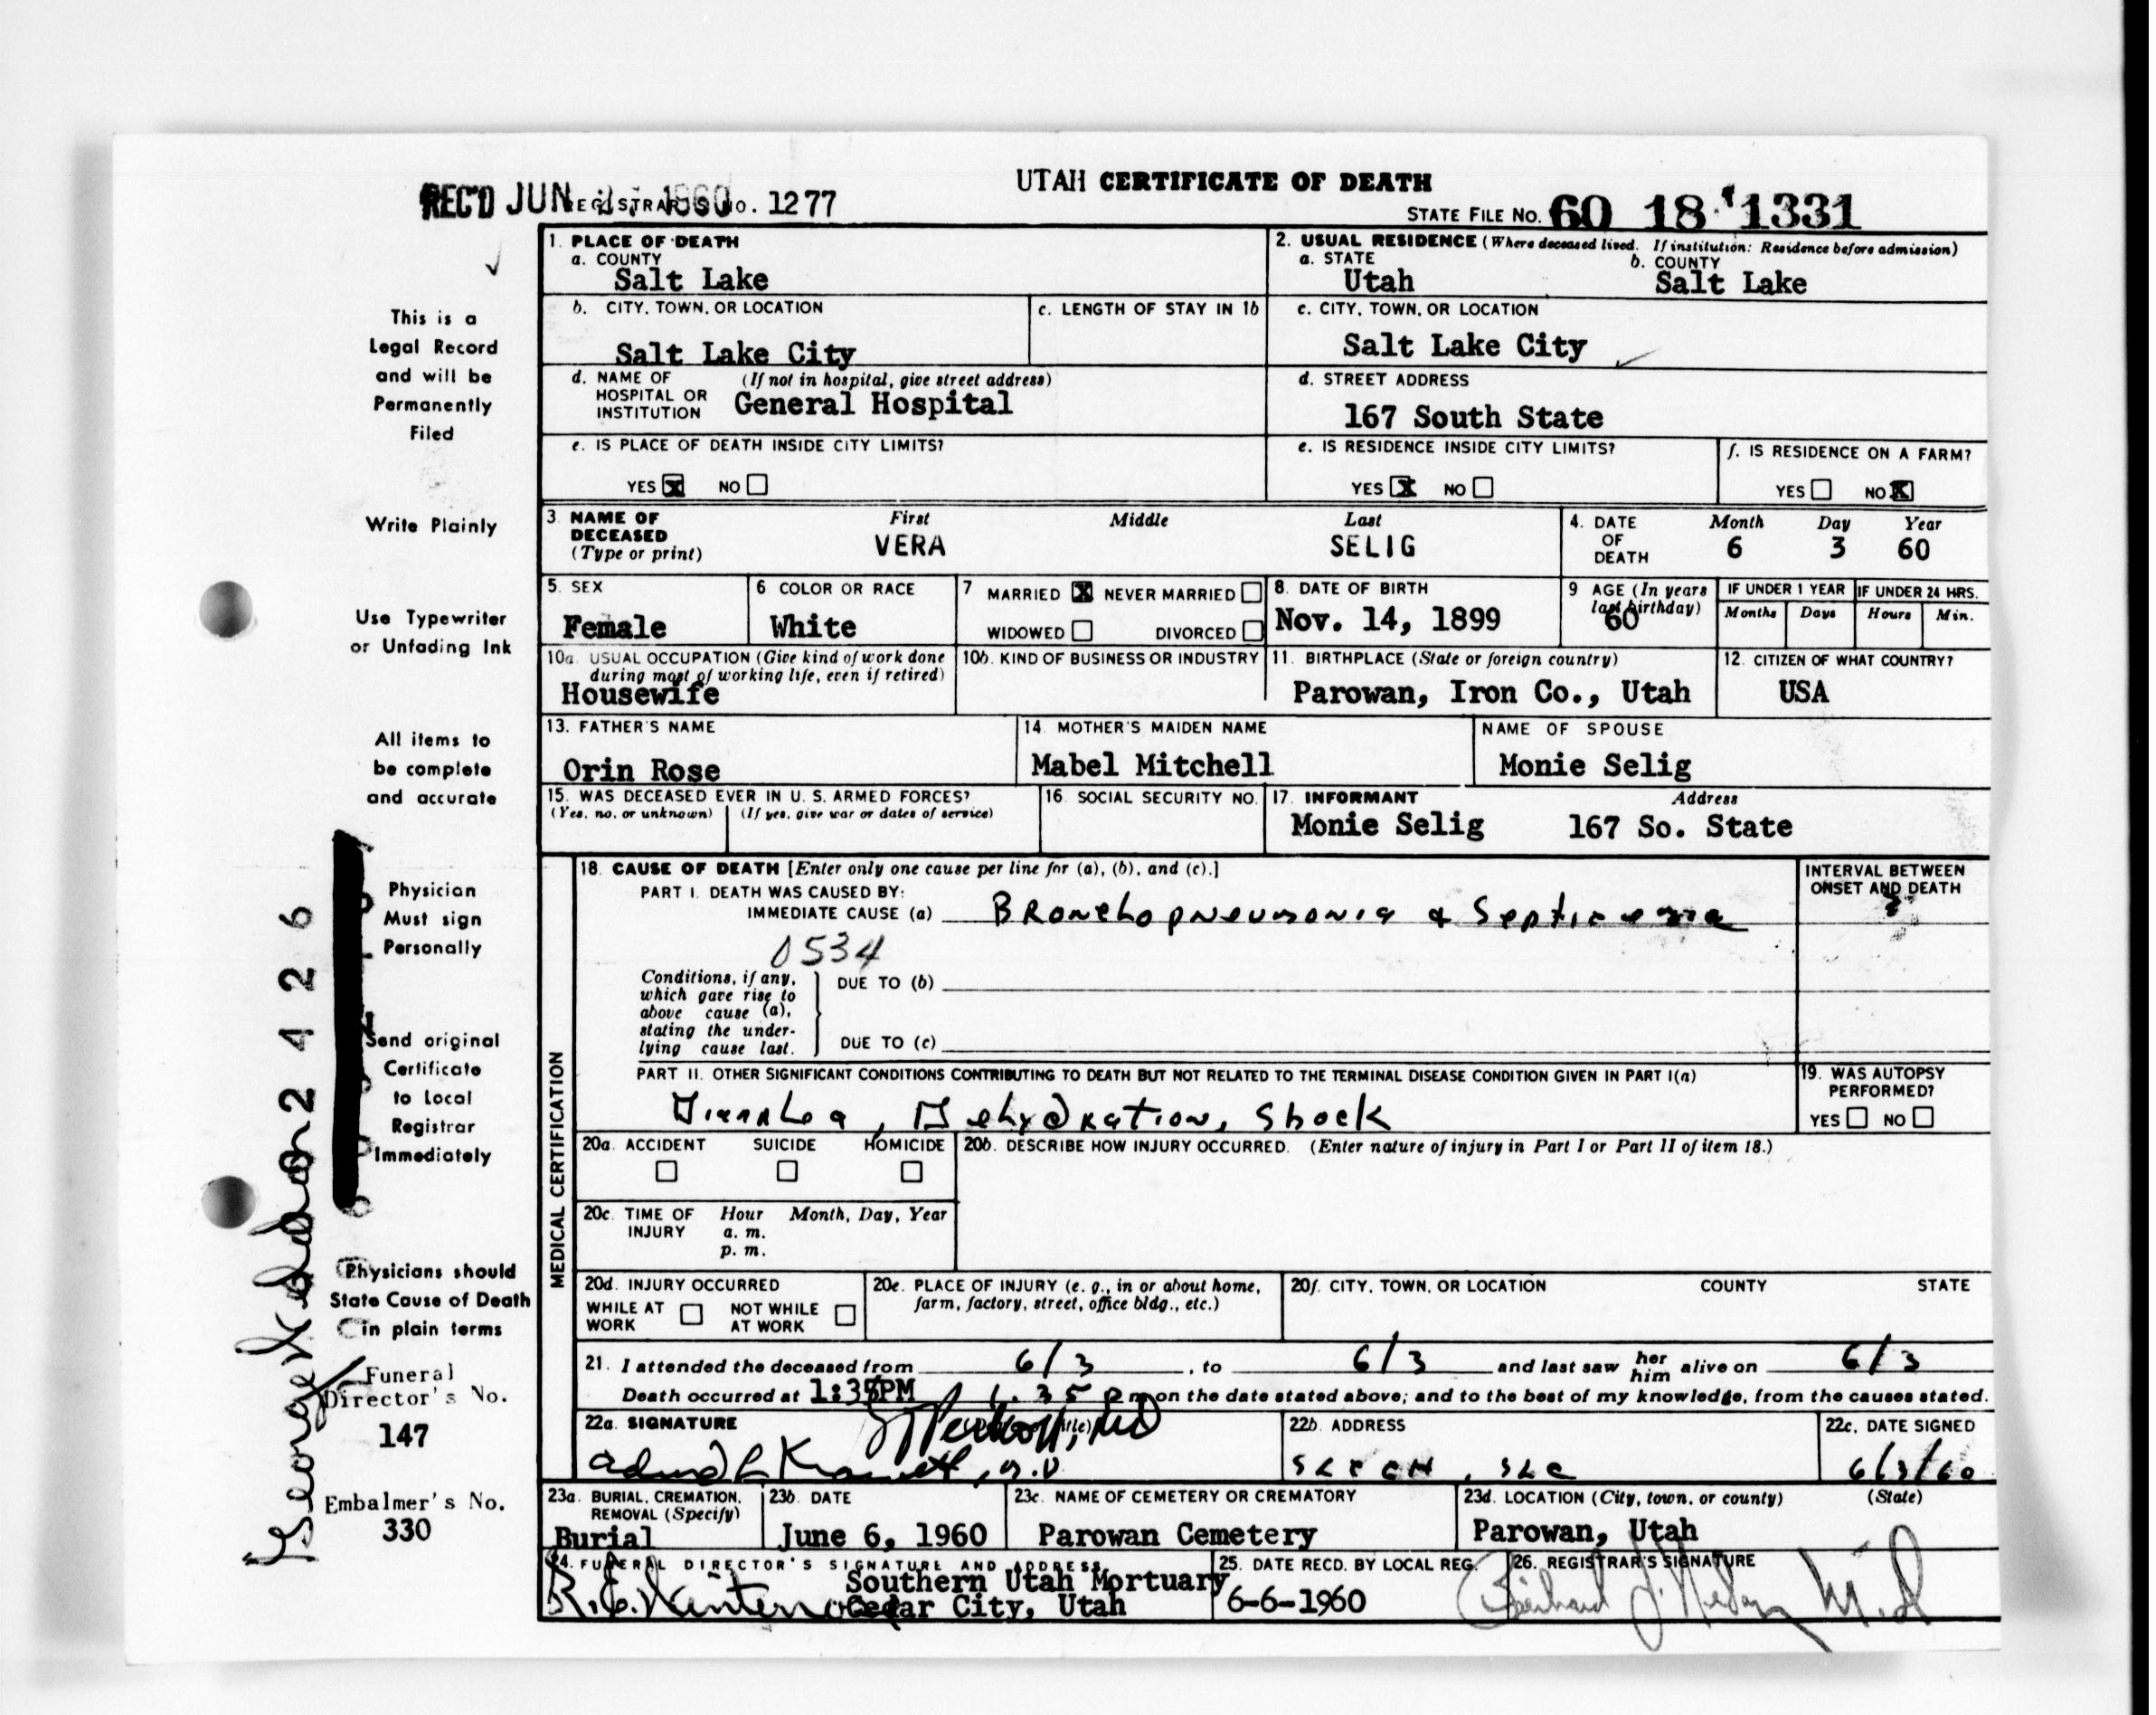 UTAH CERTIFICATE OF DEATH
REC'D JUN 1960 REGISTRAR'S No. 1277
STATE FILE No. 60 18 1331
1. PLACE OF DEATH
a. COUNTY
Salt Lake
2. USUAL RESIDENCE (Where deceased lived. If institution: Residence before admission)
a. STATE b. COUNTY
Utah Salt Lake
b. CITY, TOWN, OR LOCATION
Salt Lake City
c. LENGTH OF STAY IN 1b
c. CITY, TOWN, OR LOCATION
Salt Lake City
d. NAME OF (If not in hospital, give street address)
HOSPITAL OR
INSTITUTION General Hospital
d. STREET ADDRESS
167 South State
e. IS PLACE OF DEATH INSIDE CITY LIMITS?
YES X NO
e. IS RESIDENCE INSIDE CITY LIMITS?
YES X NO
f. IS RESIDENCE ON A FARM?
YES NO X
3. NAME OF First Middle Last
DECEASED
(Type or print) VERA SELIG
4. DATE Month Day Year
OF
DEATH 6 3 60
5. SEX
Female
6 COLOR OR RACE
White
7 MARRIED X NEVER MARRIED
WIDOWED DIVORCED
8. DATE OF BIRTH
Nov. 14, 1899
9 AGE (In years
last birthday)
60
IF UNDER 1 YEAR
Months Days
IF UNDER 24 HRS.
Hours Min.
10a. USUAL OCCUPATION (Give kind of work done
during most of working life, even if retired)
Housewife
10b. KIND OF BUSINESS OR INDUSTRY
11. BIRTHPLACE (State or foreign country)
Parowan, Iron Co., Utah
12. CITIZEN OF WHAT COUNTRY?
USA
13. FATHER'S NAME
Orin Rose
14. MOTHER'S MAIDEN NAME
Mabel Mitchell
NAME OF SPOUSE
Monie Selig
15. WAS DECEASED EVER IN U. S. ARMED FORCES?
(Yes, no, or unknown) (If yes, give war or dates of service)
16. SOCIAL SECURITY NO.
17. INFORMANT Address
Monie Selig 167 So. State
18. CAUSE OF DEATH [Enter only one cause per line for (a), (b), and (c).]
PART I. DEATH WAS CAUSED BY:
IMMEDIATE CAUSE (a) Bronchopneumonia & Septicemia
0534
Conditions, if any,
which gave rise to
above cause (a),
stating the under-
lying cause last.
DUE TO (b)
DUE TO (c)
INTERVAL BETWEEN
ONSET AND DEATH
PART II. OTHER SIGNIFICANT CONDITIONS CONTRIBUTING TO DEATH BUT NOT RELATED TO THE TERMINAL DISEASE CONDITION GIVEN IN PART I(a)
Diarrhea, Dehydration, Shock
19. WAS AUTOPSY
PERFORMED?
YES NO
MEDICAL CERTIFICATION
20a. ACCIDENT SUICIDE HOMICIDE
20b. DESCRIBE HOW INJURY OCCURRED. (Enter nature of injury in Part I or Part II of item 18.)
20c. TIME OF Hour Month, Day, Year
INJURY a. m.
p. m.
20d. INJURY OCCURRED
WHILE AT NOT WHILE
WORK AT WORK
20e. PLACE OF INJURY (e. g., in or about home,
farm, factory, street, office bldg., etc.)
20f. CITY, TOWN, OR LOCATION COUNTY STATE
21. I attended the deceased from 6/3, to 6/3 and last saw her him alive on 6/3
Death occurred at 1:35PM 1:35 P m on the date stated above; and to the best of my knowledge, from the causes stated.
22a. SIGNATURE
22b. ADDRESS
SLCGH, SLC
22c. DATE SIGNED
6/3/60
23a. BURIAL, CREMATION,
REMOVAL (Specify)
Burial
23b. DATE
June 6, 1960
23c. NAME OF CEMETERY OR CREMATORY
Parowan Cemetery
23d. LOCATION (City, town, or county) (State)
Parowan, Utah
24. FUNERAL DIRECTOR'S SIGNATURE AND ADDRESS
Southern Utah Mortuary
Cedar City, Utah
25. DATE RECD. BY LOCAL REG.
6-6-1960
26. REGISTRAR'S SIGNATURE
This is a
Legal Record
and will be
Permanently
Filed
Write Plainly
Use Typewriter
or Unfading Ink
All items to
be complete
and accurate
Physician
Must sign
Personally
Send original
Certificate
to Local
Registrar
Immediately
Physicians should
State Cause of Death
in plain terms
Funeral
Director's No.
147
Embalmer's No.
330